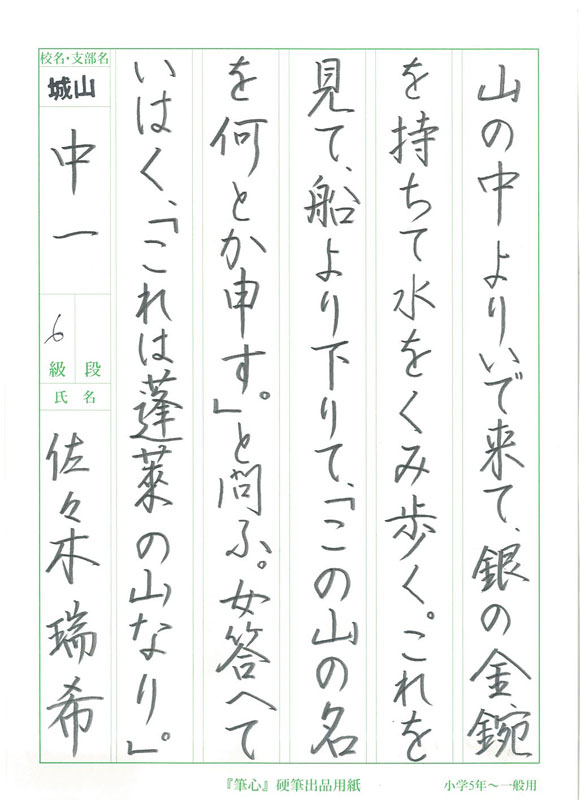 山の中よりいで来て、銀の金鋺
を持ちて水をくみ歩く。これを
見て、船より下りて、「この山の名
を何とか申す。」と問ふ。女答へて
いはく、「これは蓬萊の山なり」。
校名・支部名
城山
中一
段
6級
氏名
佐々木瑞希
『筆心』硬筆出品用紙
小学5年〜一般用